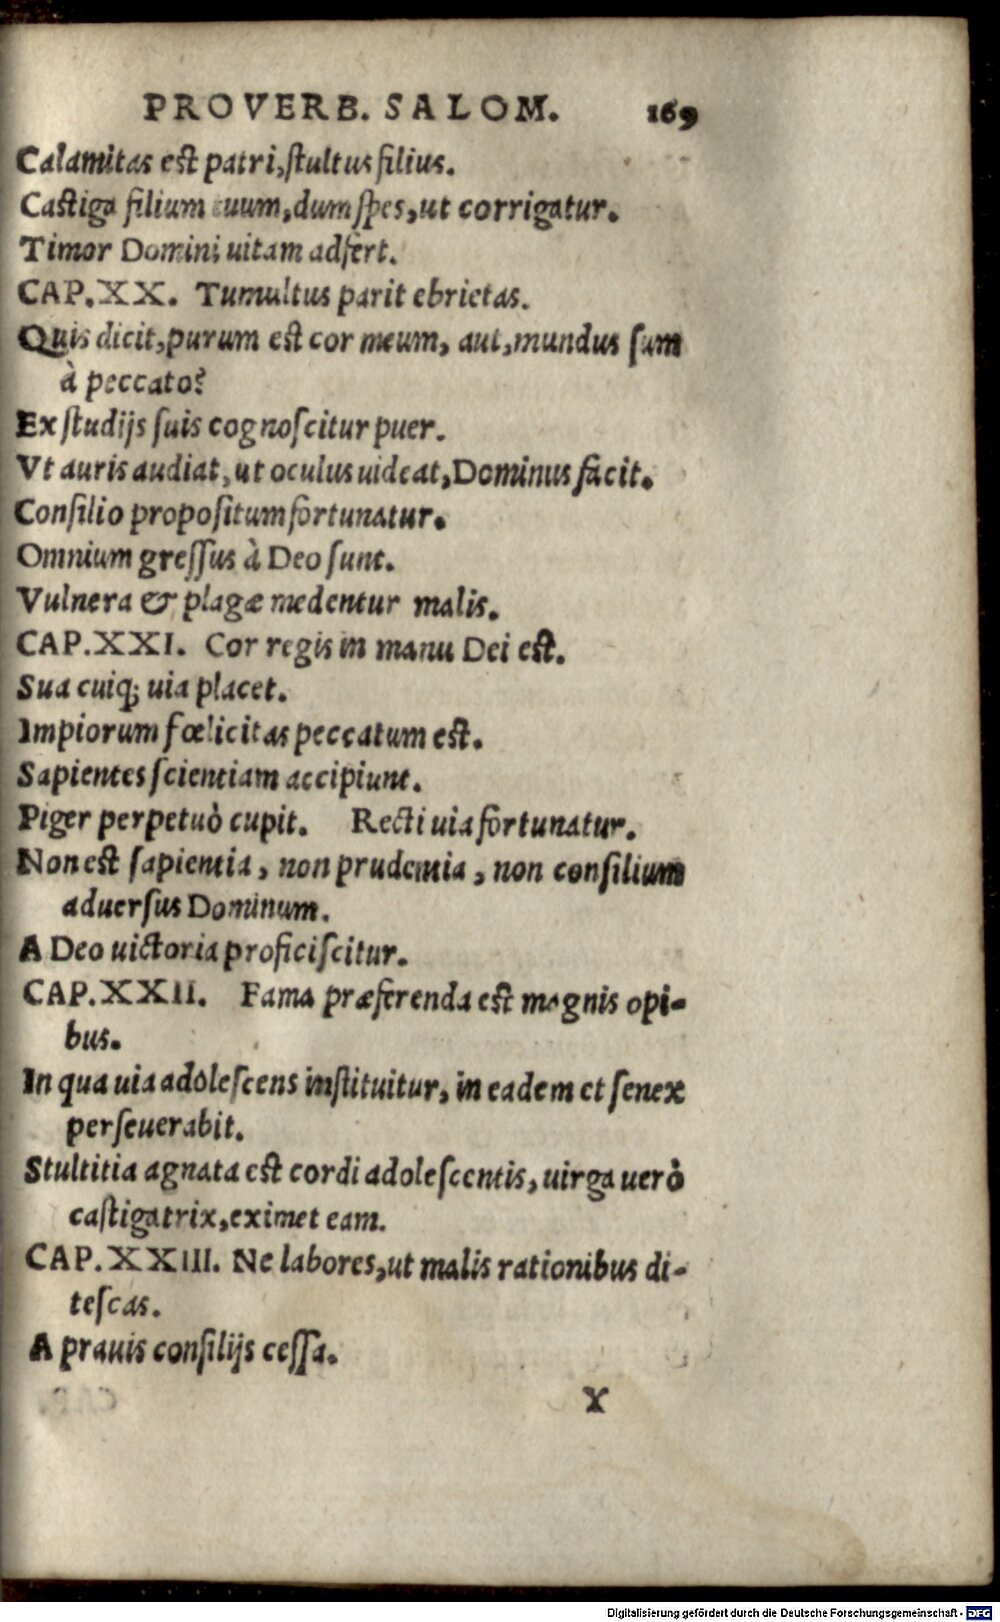 PROVERB. SALOM. 169
Calamitas est patri, stultus filius.
Castiga filium tuum, dum spes, ut corrigatur.
Timor Domini uitam adfert.
CAP. XX. Tumultus parit ebrietas.
Quis dicit, purum est cor meum, aut, mundus sum
à peccato?
Ex studijs suis cognoscitur puer.
Vt auris audiat, ut oculus uideat, Dominus facit.
Consilio propositum fortunatur.
Omnium gressus à Deo sunt.
Vulnera & plagæ medentur malis.
CAP. XXI. Cor regis in manu Dei est.
Sua cuiq; uia placet.
Impiorum fœlicitas peccatum est.
Sapientes scientiam accipiunt.
Piger perpetuò cupit. Recti uia fortunatur.
Non est sapientia, non prudentia, non consilium
aduersus Dominum.
A Deo uictoria proficiscitur.
CAP. XXII. Fama præferenda est magnis opi-
bus.
In qua uia adolescens instituitur, in eadem et senex
perseuerabit.
Stultitia agnata est cordi adolescentis, uirga uerò
castigatrix, eximet eam.
CAP. XXIII. Ne labores, ut malis rationibus di-
tescas.
A prauis consilijs cessa.
X
Digitalisierung gefördert durch die Deutsche Forschungsgemeinschaft - DFG